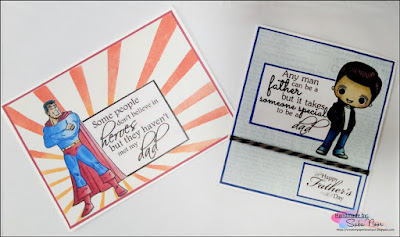 Some people
don't believe in
heroes
but they haven't
met my
dad
Any man
can be a
father
but it takes
someone special
to be a
dad
Happy
Father's
Day
Handmade by: